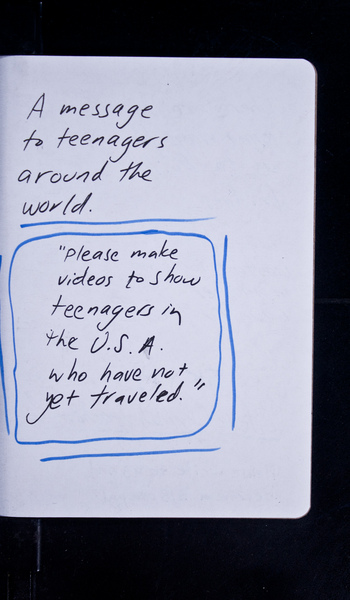 A message
to teenagers
around the
world.
"Please make
videos to show
teenagers in
the U.S.A.
who have not
yet traveled."